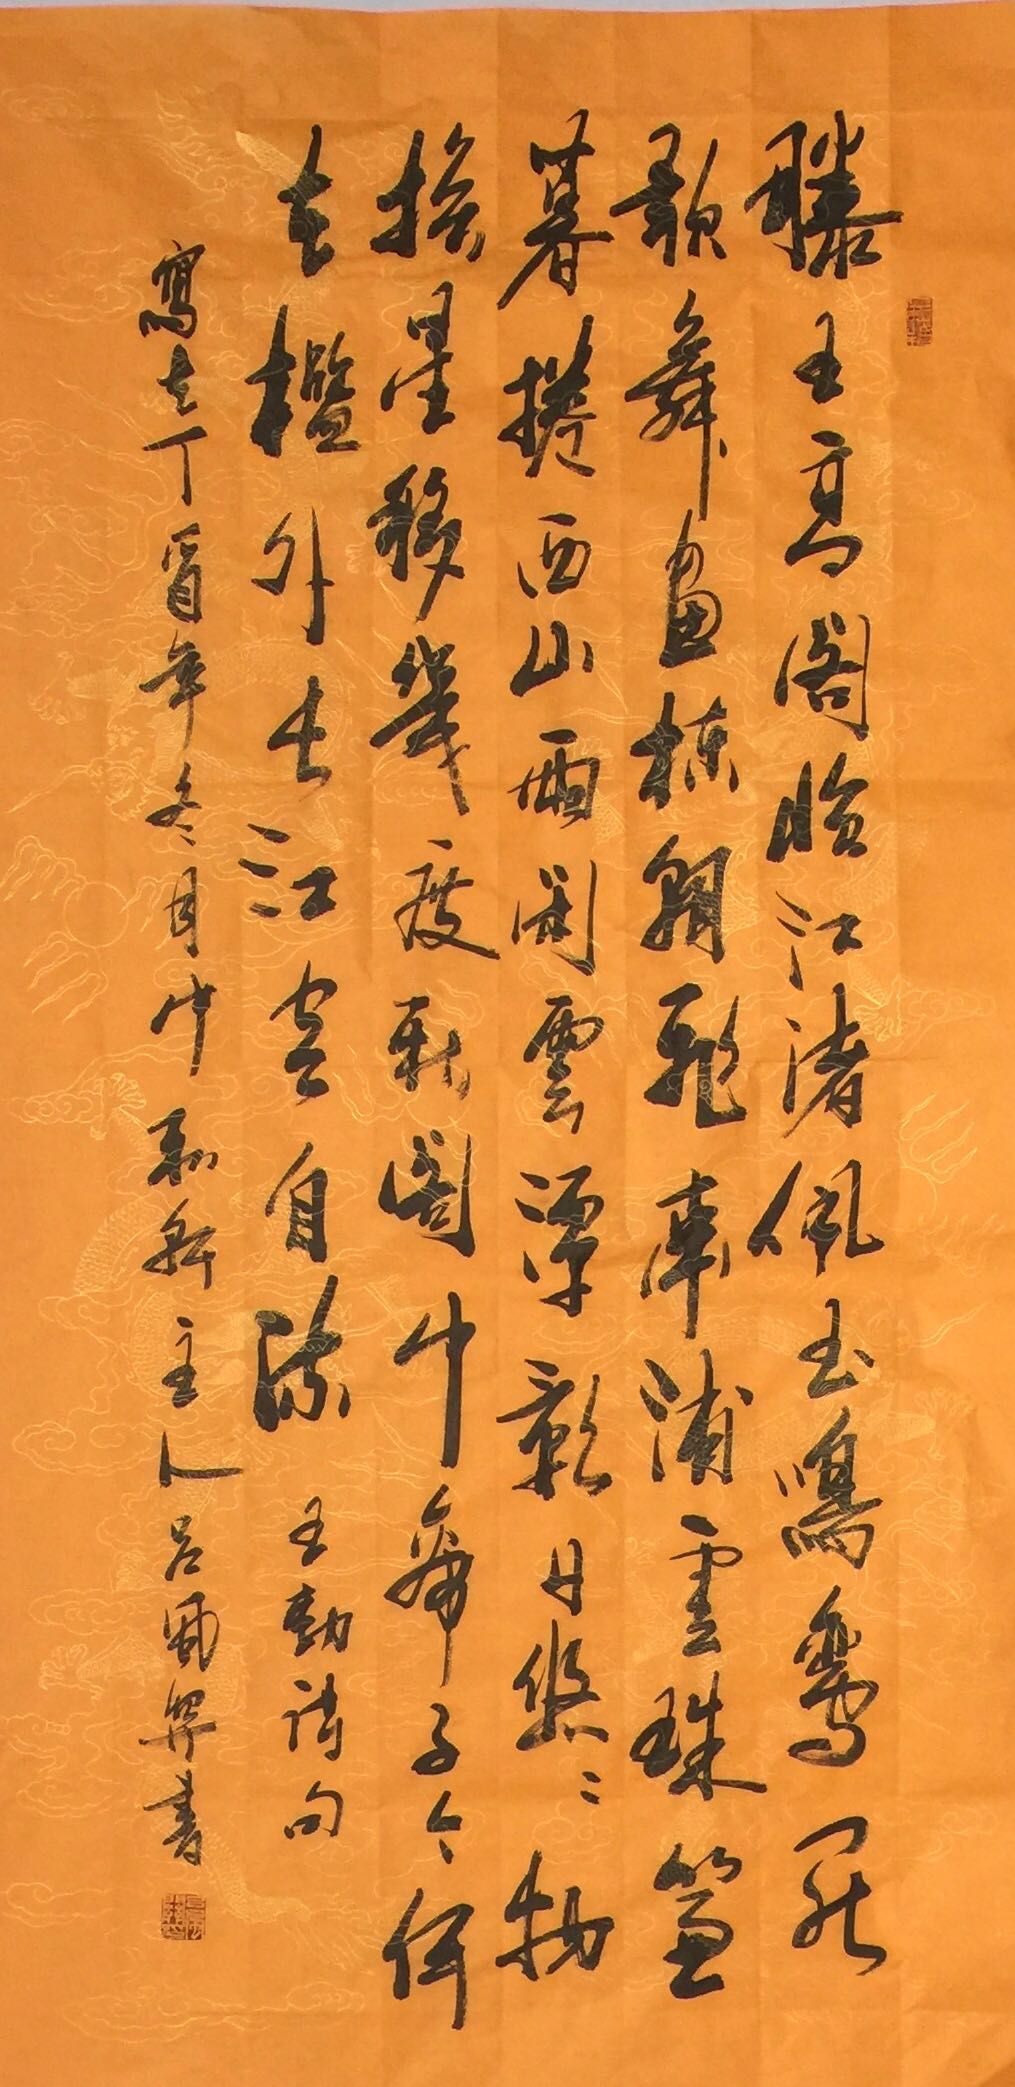 滕王高阁临江渚佩玉鳴鸞罷
歌舞畫棟朝飛南浦雲珠簾
暮捲西山雨闲雲潭影日悠〻物
换星移幾度秋阁中帝子今何
在檻外长江空自流 王勃诗句
寫在丁酉年冬月中 主人吕凤 書